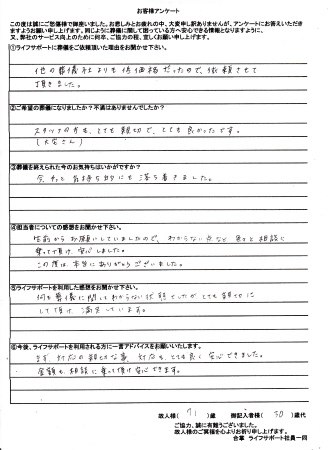 お客様アンケート
この度は誠にご愁傷様で御座いました。お悲しみとお疲れの中、大変申し訳ありませんが、アンケートにお答えいただき
ますようお願い申し上げます。同じように葬儀に関して困っている方へ安心できる情報となりますように、
又、弊社のサービス向上のために何卒、ご協力の程、宜しくお願い申し上げます。
①ライフサポートに葬儀をご依頼頂いた理由をお聞かせ下さい。
他の葬儀社よりも低価格だったので、依頼させて
頂きました。
②ご希望の葬儀になりましたか？不満はありませんでしたか？
スタッフの方も、とても親切で、とても良かったです。
③葬儀を終えられた今のお気持ちはいかがですか？
気持ち的にも落ち着きました。
④担当者についての感想をお聞かせ下さい。
生前からお願いしていましたので、わからない点など 色々と相談に
乗って頂け、安心しました。
この度は、本当にありがとうございました。
⑤ライフサポートを利用された感想をお聞かせ下さい。
何も葬儀に関してわからない状態でしたが、とても親切に
して頂け、満足しています。
⑥今後、ライフサポートを利用される方に一言アドバイスをお願いいたします。
まず、対応の親切な事、対応も、とても良く 安心できました。
金額も、相談に乗って頂け安心できます。
故人様（ 71 ）歳 御記入者様（ 50 ）歳代
ご協力、誠に有難うございました。
故人様のご冥福を心よりお祈り申し上げます。
合掌 ライフサポート社員一同